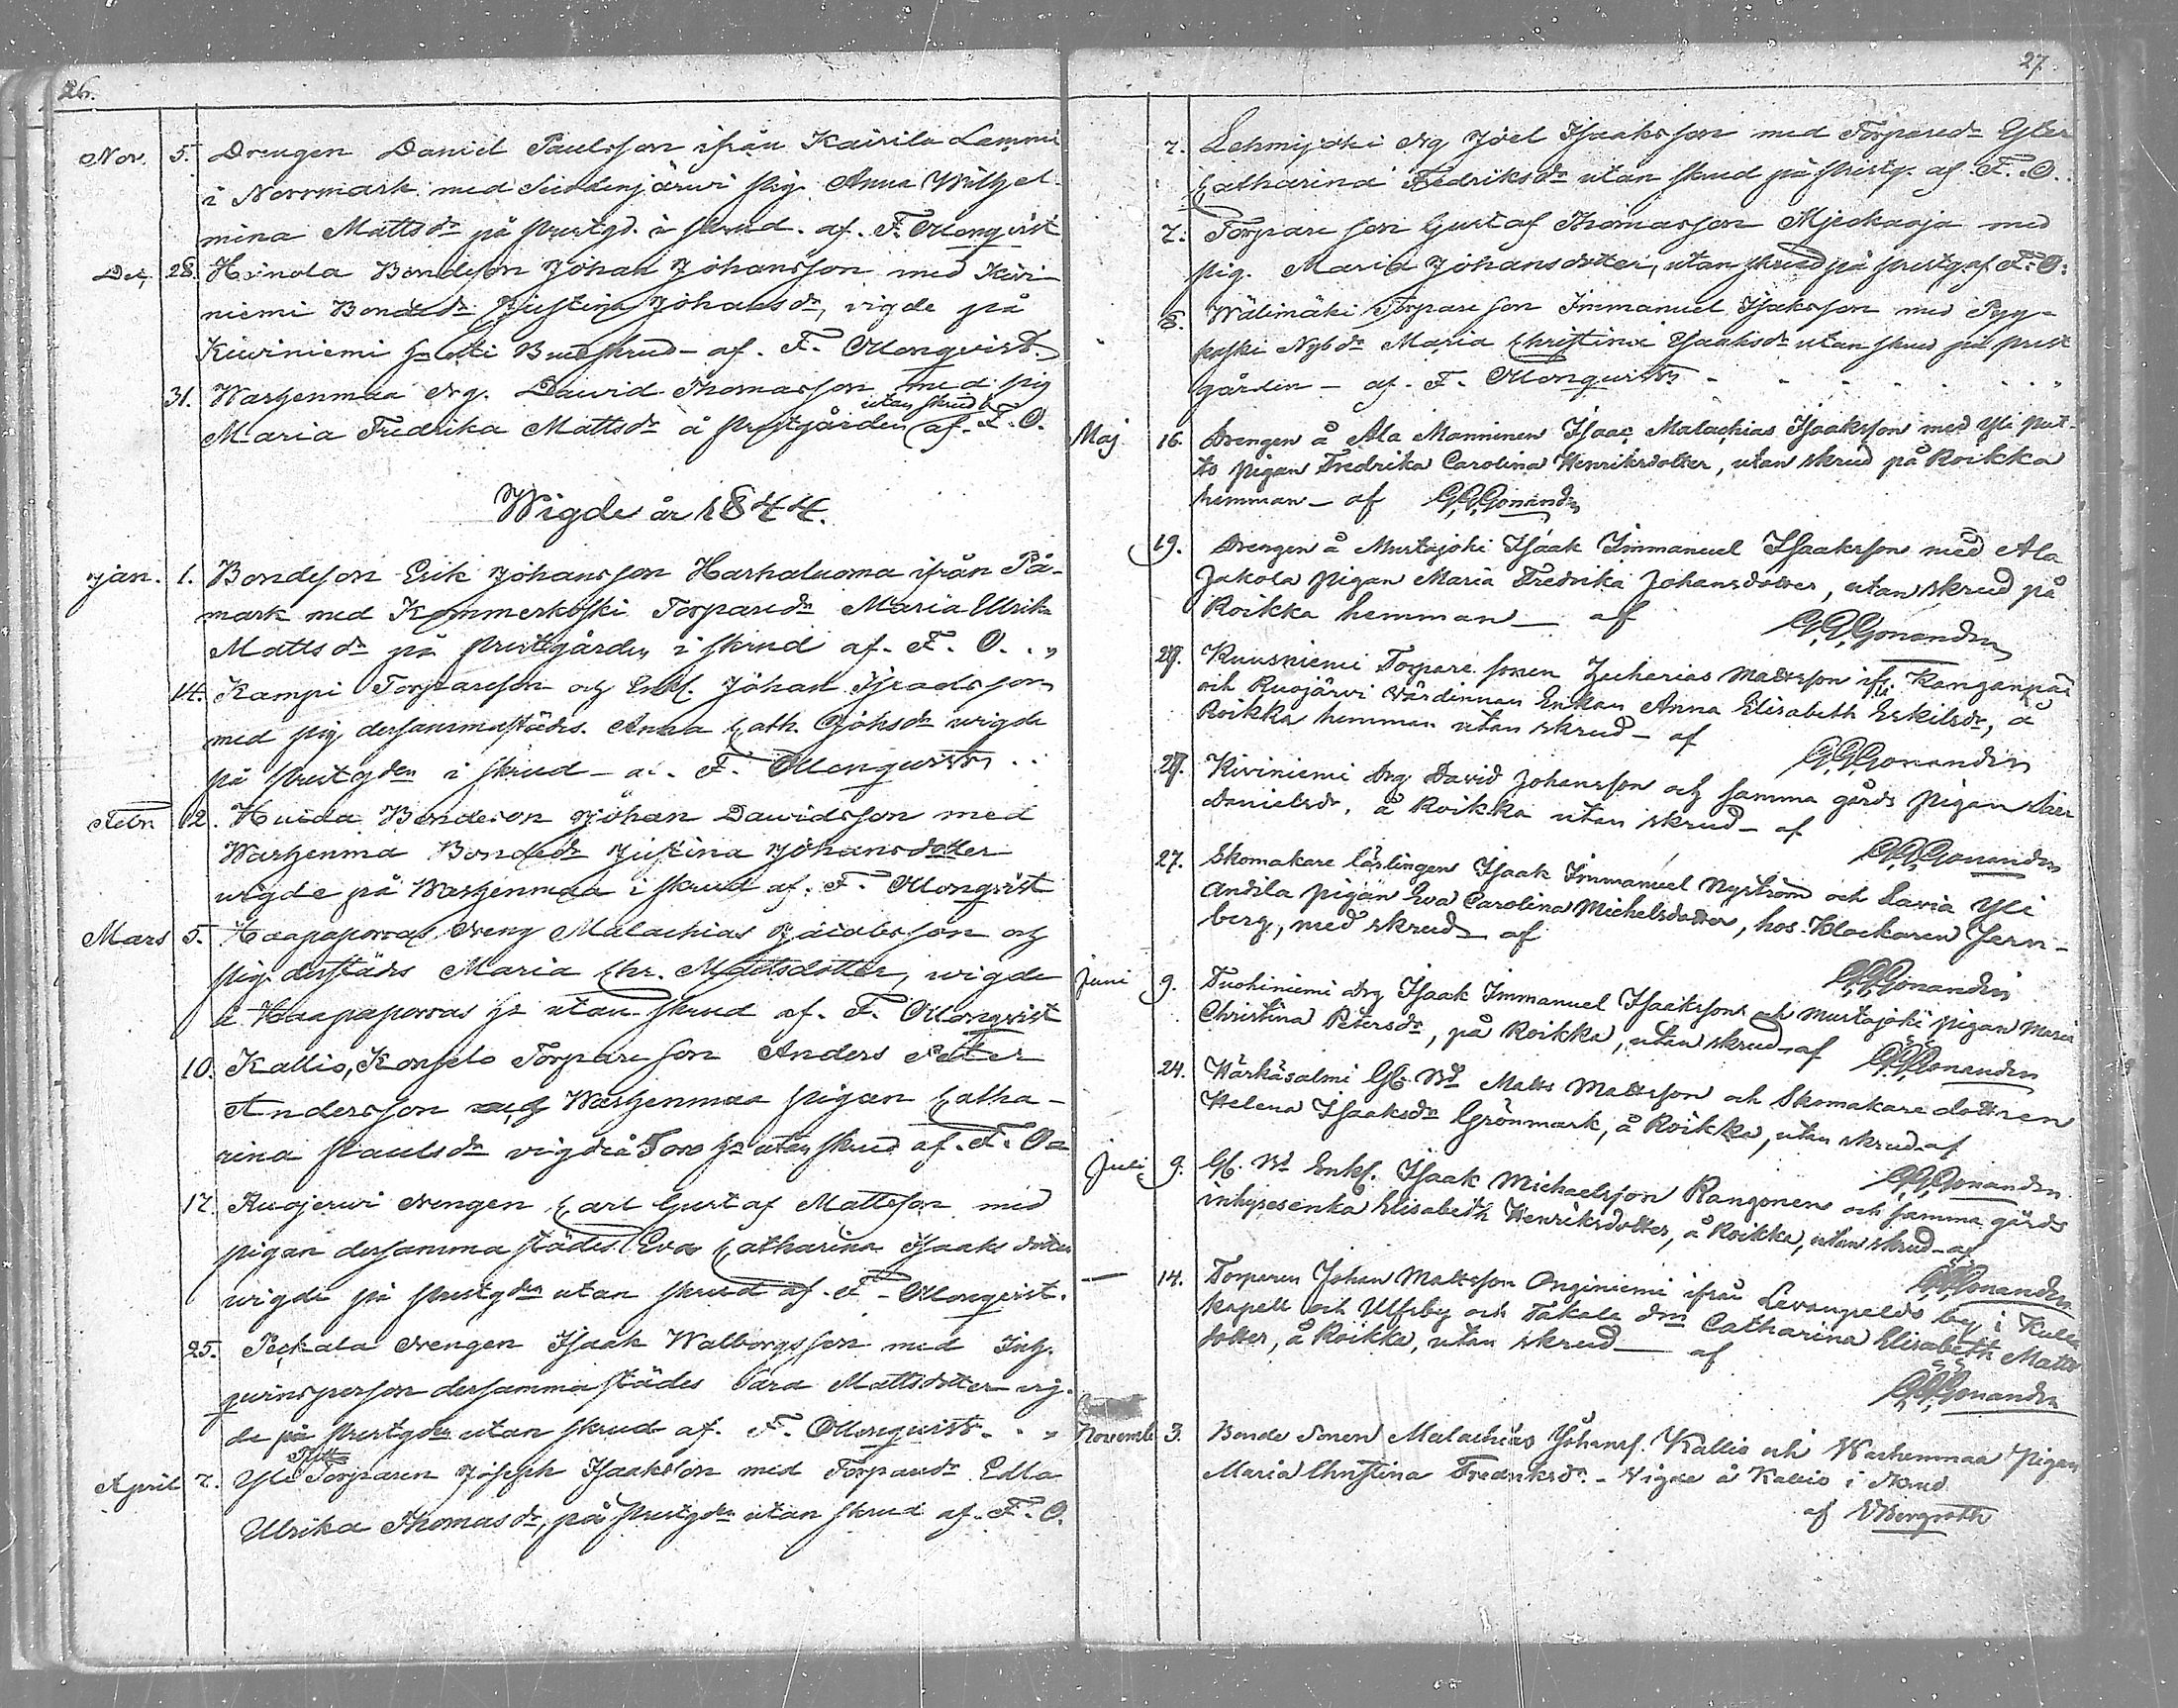 26.
Nov. 5. Drengen Daniel Paulsson ifrån Kairila Lammi
i Norrmark med Suodenjärwi pig. Anna Wilhel-
mina Mattsdr på Prestgd. i skrud. af. F. Ollonqvist
Dec. 28. Heinola Bondeson Johan Johansson med Kiwi-
niemi Bondedr Justina Johansdr, vigde på
Kiwiniemi hn i Brudskrud - af. F. Ollonqvist.
31. Wartzenmaa drg. David Thomasson med pig
utan skrud
Maria Fredrika Mattsdr å Prestgården af. F. O.
Wigde år 1844.
Jan. 1. Bondeson Erik Johansson Harhaluoma ifrån På-
mark med Kommerkoski Torparedr Maria Ulrika
Mattsdr på Prestgården i skrud af. F. O. . "
14. Kampi Torpareson och Enkl. Johan
med pig dersammastädes. Anna Cath. Johsdr wigde
på Prestgden i skrud - af. F. Ollonquist . .
Febr. 12. Huida Bondeson Johan Dawidsson med
Wartzenma Bondedr Justina Johansdotter
wigde på Wartzenmaa i skrud af. F. Ollonqvist
Mars 5. Haapaporras dreng Malachias Jacobsson och
pig. derstädes Maria Chr. Mattsdotter, wigde
å Haapaporras hn utan skrud af. F. Ollonqvist
10. Kallio, Torpare son Anders Petter
Andersson och Wartzenmaa pigan Catha-
rina Paulsdr vigde å hn utan skrud af. F. O.
17. Ruojerwi drengen Carl Gustaf Mattsson med
pigan dersamma städes Eva Catharina Isaaks dotter
wigde på Prestgden utan skrud af. F. Ollonqvist.
25. Peckala drengen Isaak Walborgsson med Inh.
person dersamma städes Sara Mattsdotter vig-
de på Prestgden utan skrud af. F. Ollonquist. . "
April 7. Yli Torparen Joseph Isaaksson med Torparedr Edla
Ulrika Thomasdr, på Prestgden utan skrud af. F. O.
27.
7. Lehmijoki drg Joel Isaaksson med Torparedr Ester
Catharina Fredriksdr utan skrud på Prestg. af. F. O. .
7. Torpare son Gustaf Thomasson Myckäoja med
pig. Maria Johansdotter, utan skrud på prestg af. F. O.
8. Wälimäki Torpare son Immanuel Isaksson med
Nybdr Maria Christina Isaaksdr utan skrud på prest
gården - af. F. Ollonquist
Maj 16. Drengen å Ala Manninen Isaac Malachias Isaaksson med Yli Put-
to pigan Fredrika Carolina Henriksdotter, utan skrud på Roikka
hemman - af G.G. Gonandin
19. Drengen å Mustajoki Isaak Immanuel Isaaksson med Ala
Jakola pigan Maria Fredrika Johansdotter, utan skrud på
Roikka hemman - af G.G. Gonandin
Kuusniemi Torpare sonen Zacharias Mattsson ifr. Kanganpää
och Ruojärvi Värdinnan Enkan Anna Elisabeth Eskilsdr, å
Roikka hemman utan skrud - af G.G. Gonandin
Kiviniemi drg David Johansson och samma gårds pigan
Danielsdr. å Roikka utan skrud - af G.G. Gonandin
27. Skomakare lärlingen Isaak Immanuel Nyström och Lavia Yli
Andila pigan Eva Carolina Michelsdotter, hos Klockaren Jern-
berg, med skrud - af G.G. Gonandin
Juni 9. Tuohiniemi drg Isaak Immanuel Isaaksson och Mustajoki pigan Maria
Christina Petersdr, på Roikka, utan skrud - af G.G. Gonandin
24. Wärkäsalmi Matts Mattsson och Skomakare dottren
Helena Isaaksdr Grönmark, å Roikka, utan skrud - af G.G. Gonandin
Juli 9. Enkl. Isaak Michaelsson Rangonen och samma gårds
inhysesenka Elisabeth Henriksdotter, å Roikka, utan skrud - af
G.G. Gonandin
— 14. Torparen Johan Mattsson Onginiemi ifrån Levanpeldo by i Kulla
kapell och Ulfsby och Takala drn Catharina Elisabeth Matts
dotter, å Roikka, utan skrud - af
G.G. Gonandin
Novemb 3. Bonde Sonen Malachias Johanss. Kallio och Warhenmaa Pigan
Maria Christina Fredriksdr. - Vigde å Kallio i skrud
af Bergroth